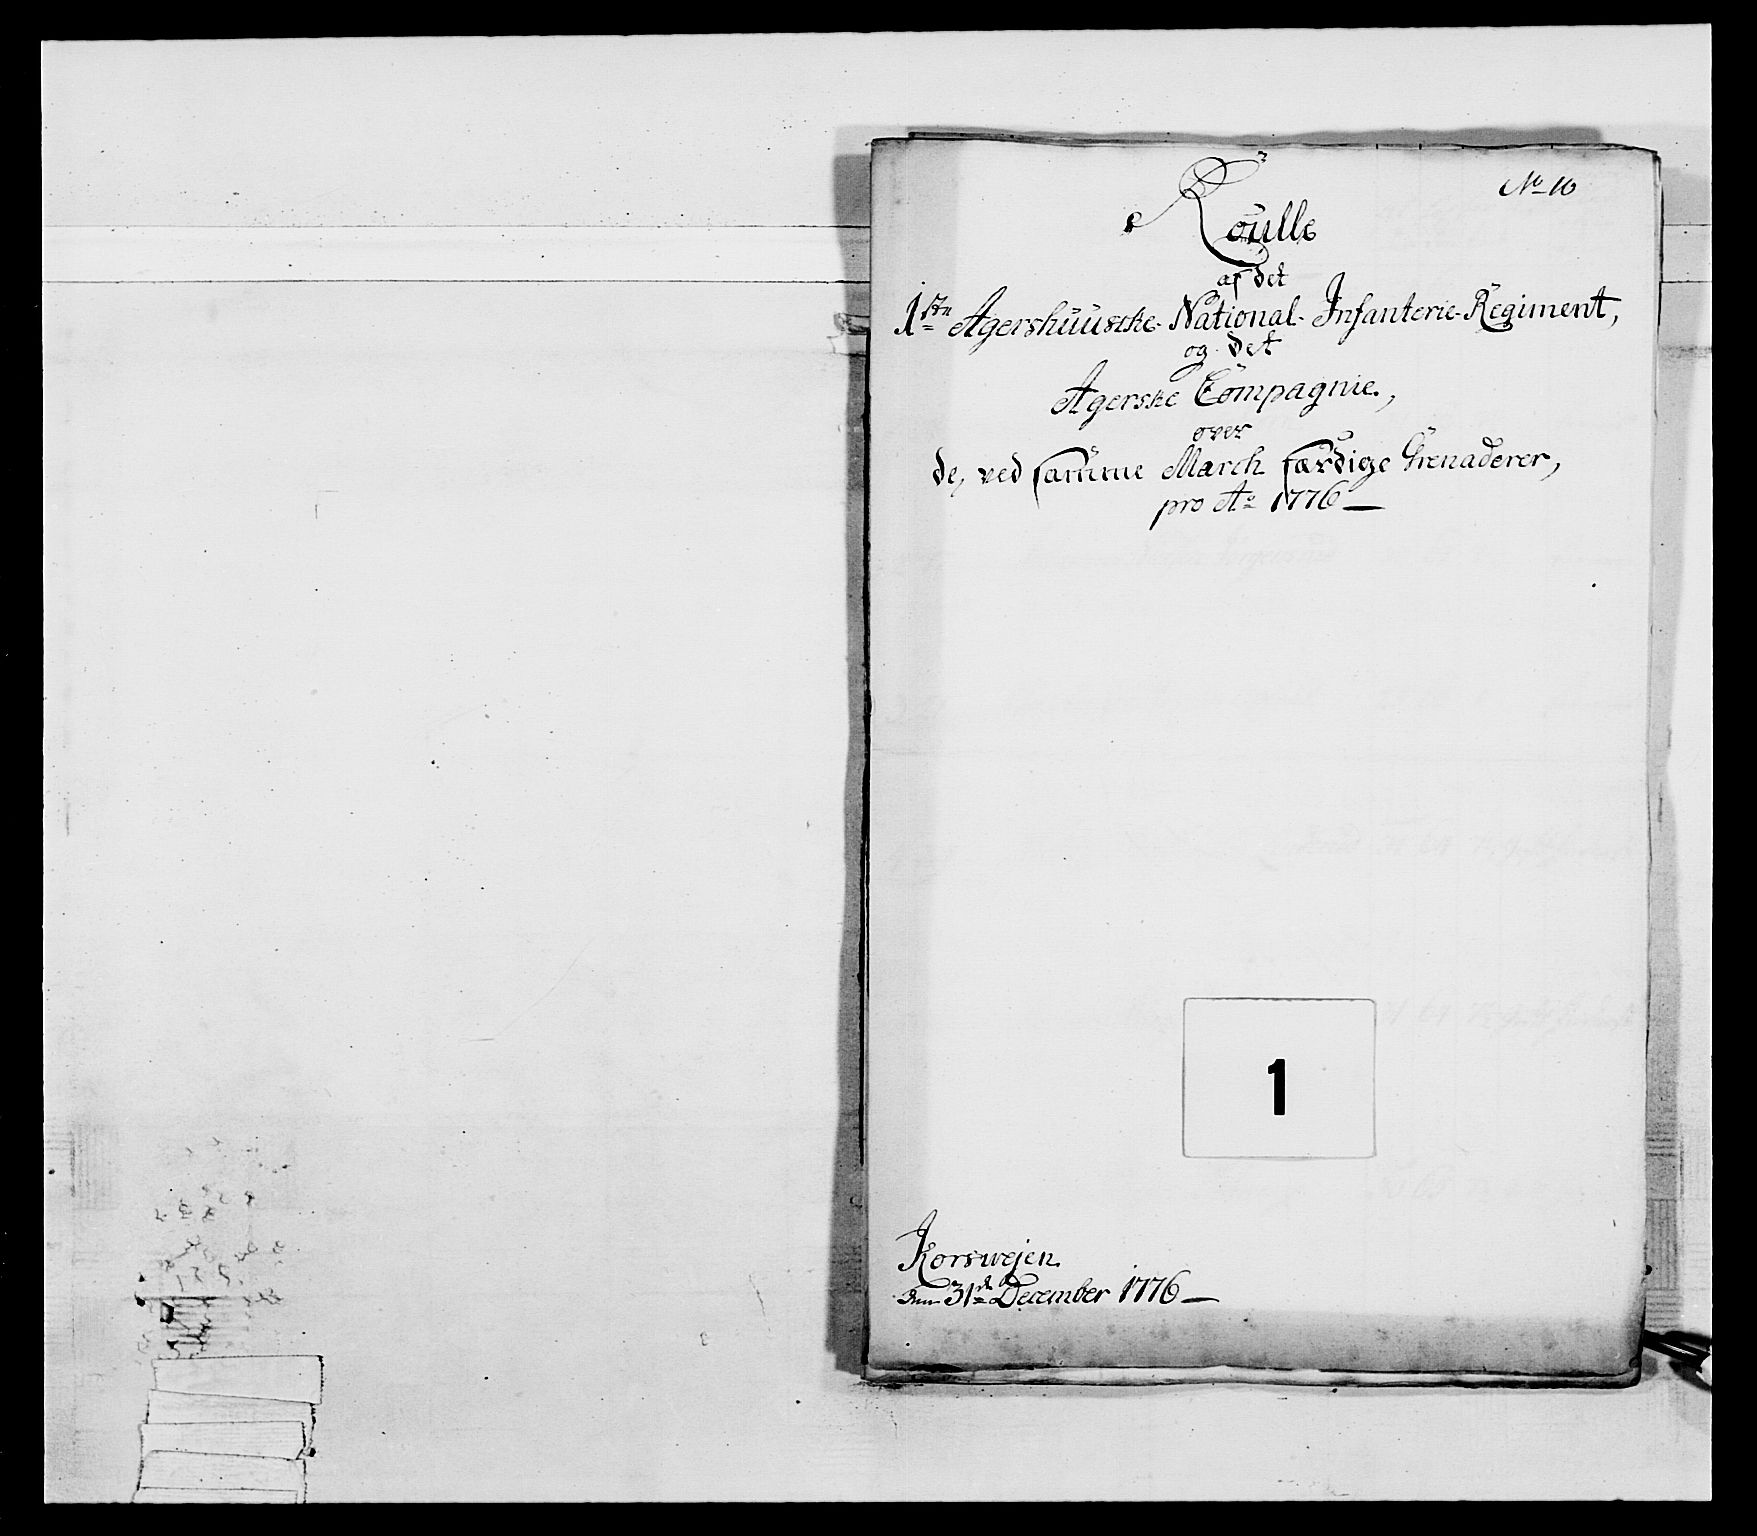 No 10
Roulle
af det
1ste Agershuuske National-Infanterie-Regiment,
og det
Agerske Compagnie,
over
de, ved samme March færdige Grenaderer,
pro Ao 1776
1
Korswejen
den 31te December 1776